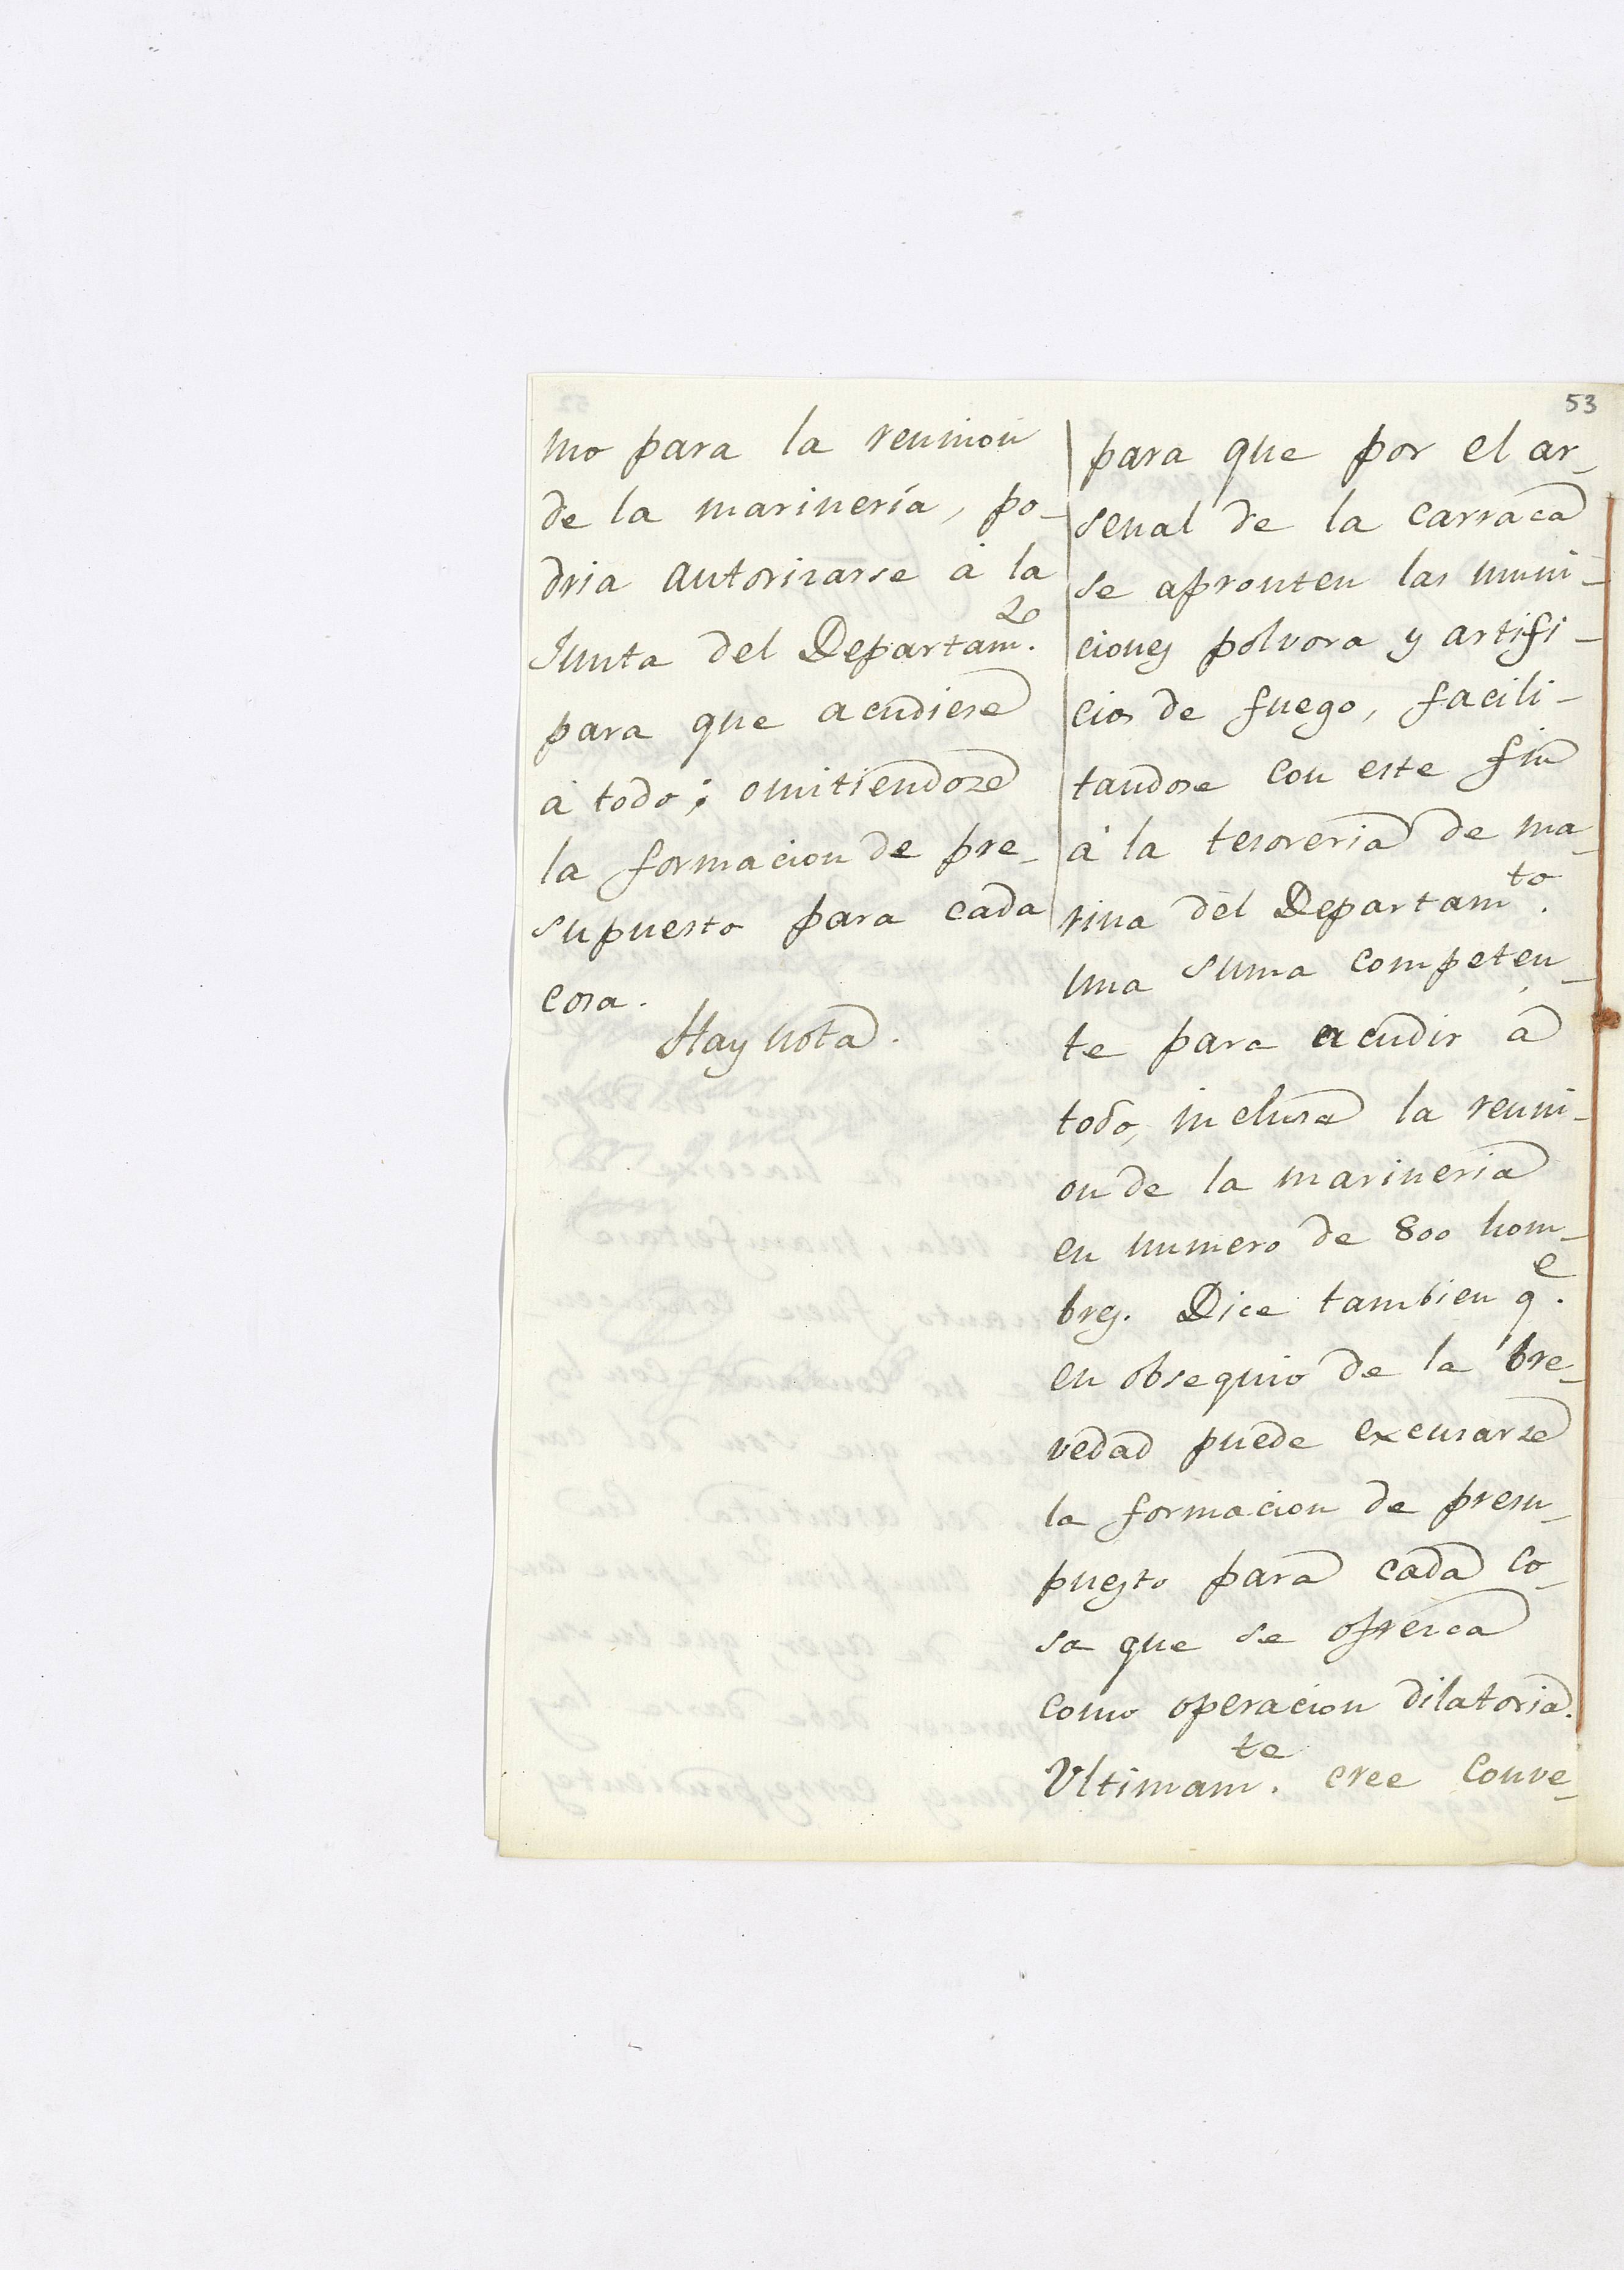 53
mo para la reunion
de la marinería, po-
dria autorizarse à la
Junta del Departam.to
para que acudiese
à todo; omitiendose
la formacion de pre-
supuesto para cada
cosa.
Hay nota.
para que por el ar-
senal de la carraca
se apronten las muni-
ciones polvora y artifi-
cios de fuego, facili-
tandose con este fin
à la tesoreria de ma-
rina del Departam.to
una suma competen-
te para acudir à
todo, inclusa la reuni-
on de la marineria
en numero de 800 hom-
bres. Dice tambien q.e
en obsequio de la bre-
vedad puede excusarse
la formacion de presu-
puesto para cada co-
sa que se ofrezca
como operacion dilatoria.
Ultimam.te cree conve-